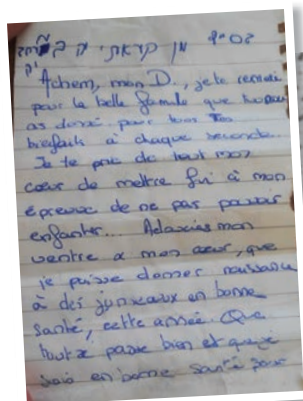 מן
Achem, mon D., je te remercie
pour la belle famille que tu nous
as donné pour tous Tes
bienfaits à chaque seconde.
Je te prie de tout mon
cœur de mettre fin à mon
épreuve de ne pas pouvoir
enfanter... Adoucies mon
ventre et mon cœur, que
je puisse donner naissance
à des jumeaux en bonne
santé, cette année. Que
tout se passe bien et que je
sois en bonne santé pour